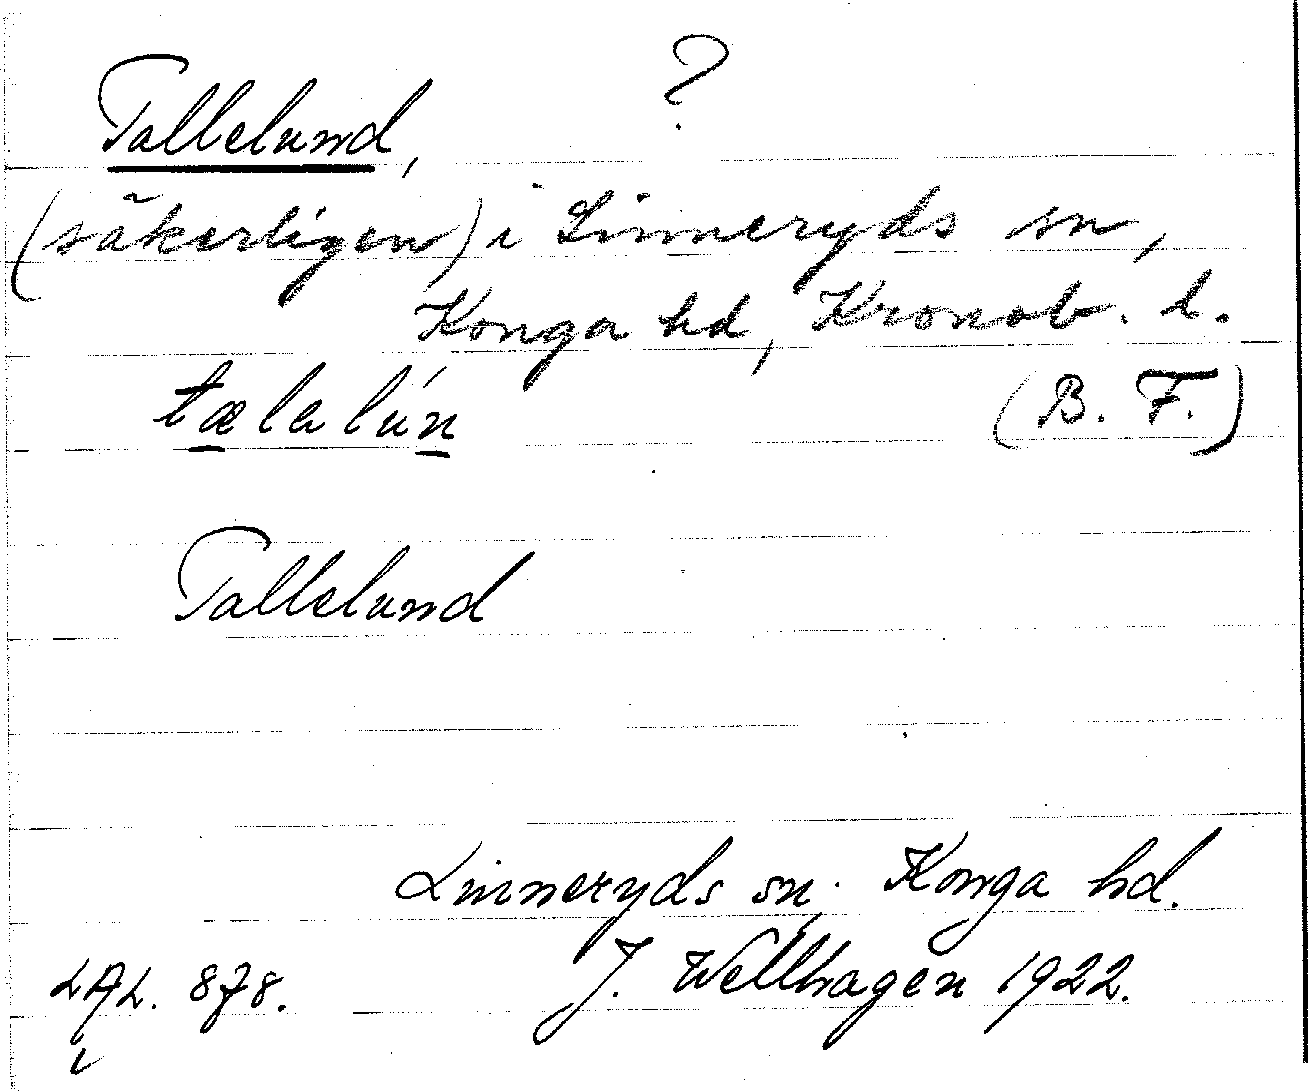 Tallelund, ?
(säkerligen) i Linneryds sn,
Konga hd, Kronob. l.
tælalún (B. F.)
Tallelund
Linneryds sn. Konga hd.
LAL. 878. J. Wellhagen 1922.